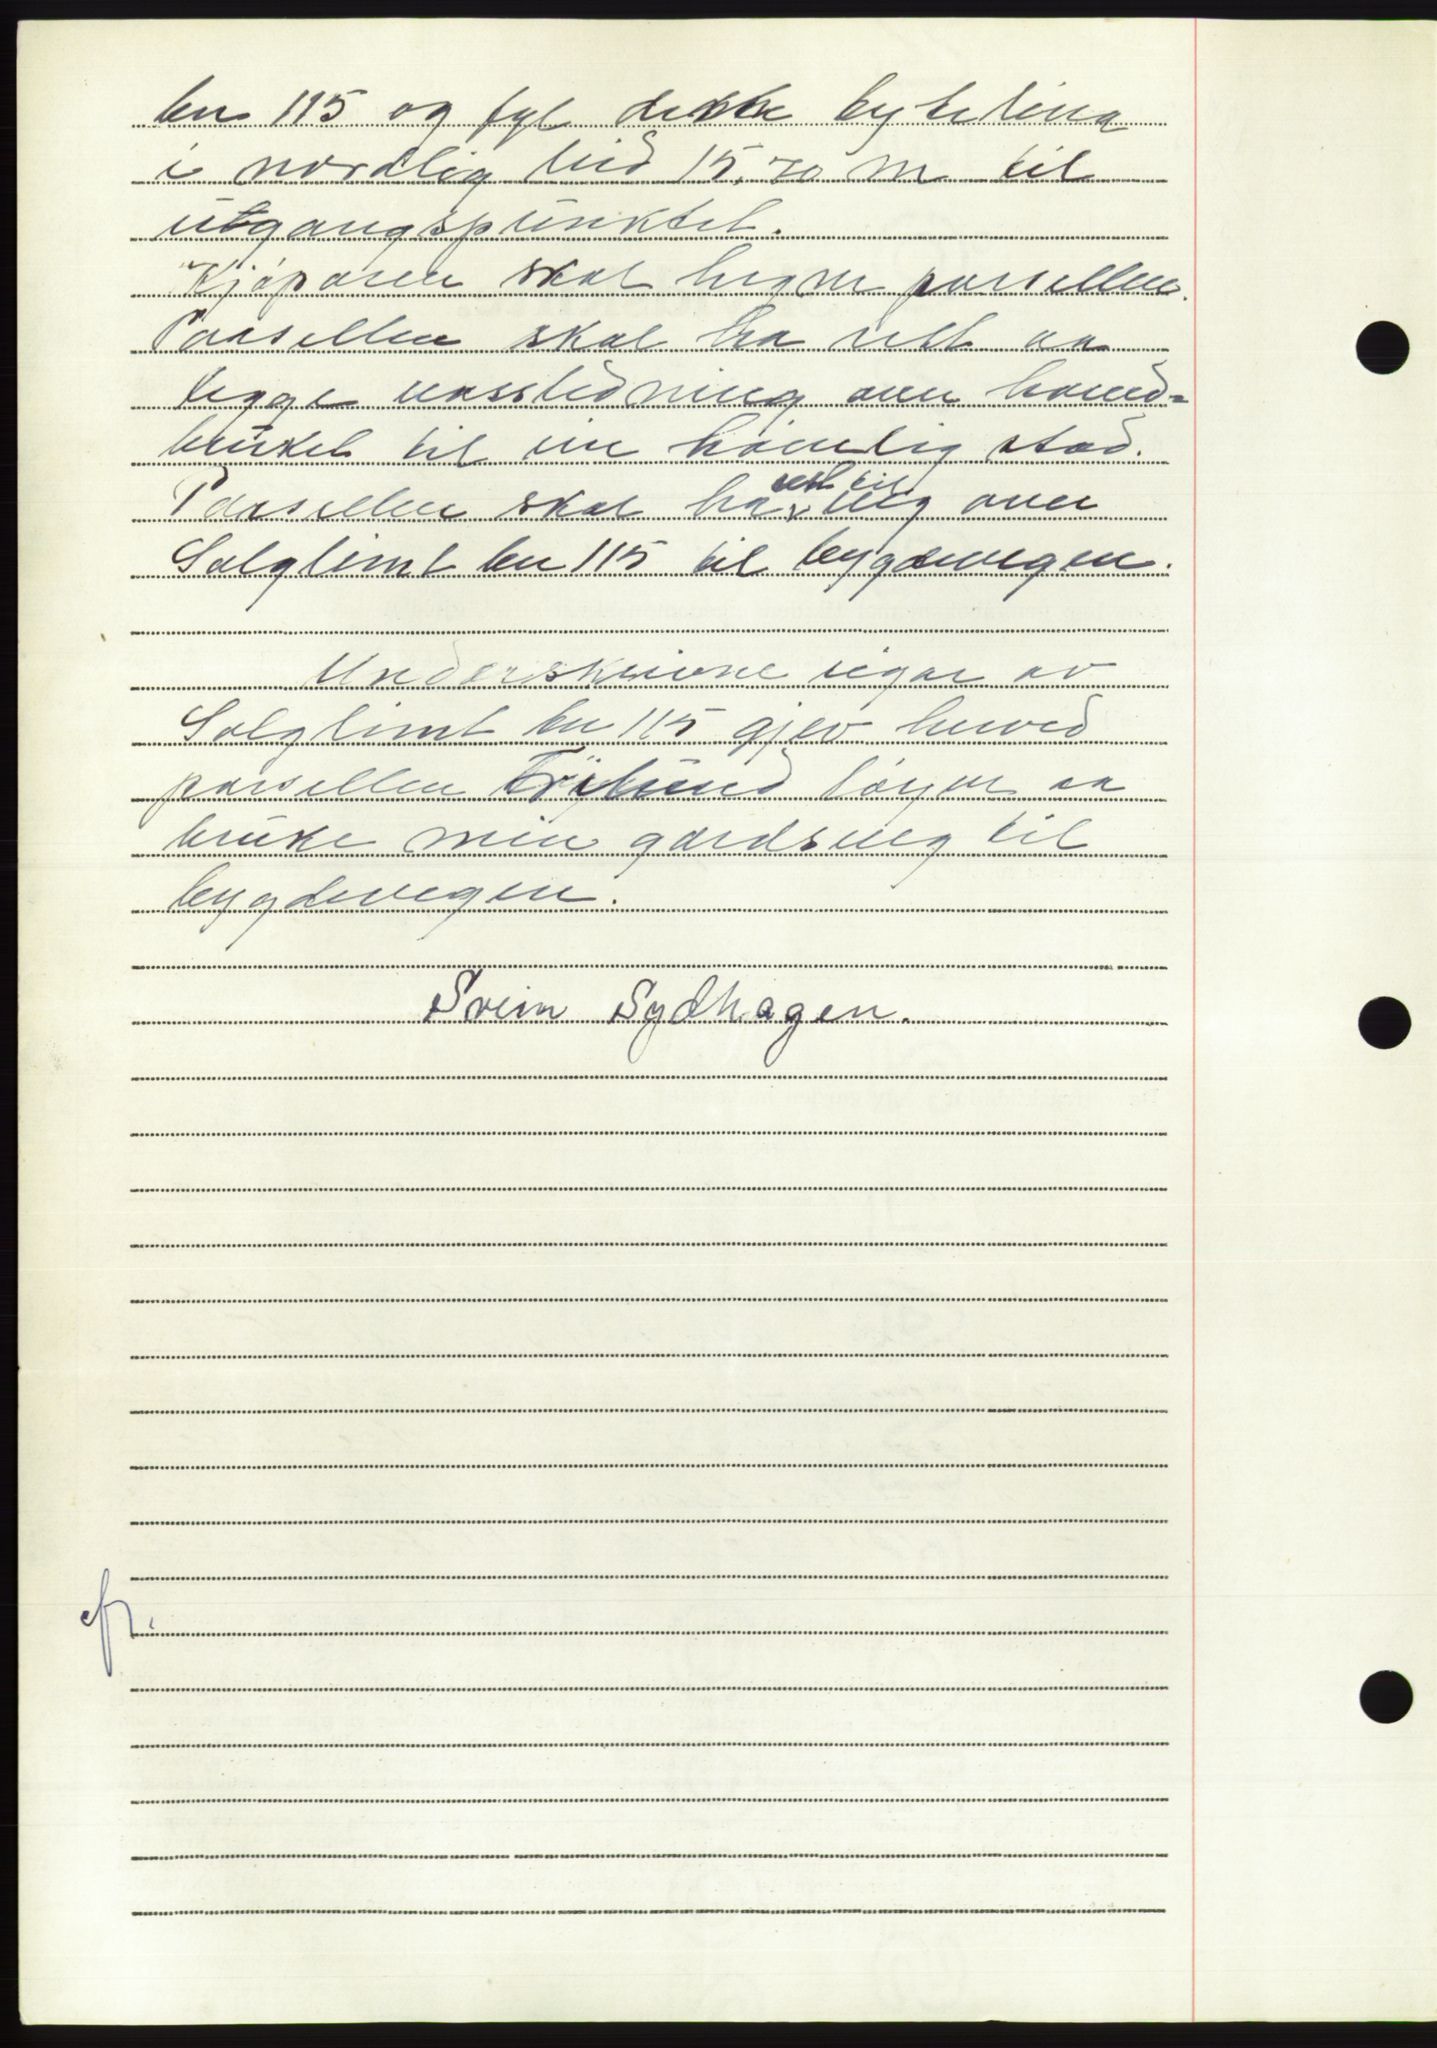 bn 115 og fyl denne bytelina
i nordlig leid 15.70 m til
utgangspunktet.
Kjøparen skal hegne parsellen.
Parsellen skal ha rett aa
legge vassledning over hoved=
bruket til ein høvelig stad.
Parsellen skal ha rett til veg over
Solglimt bn 115 til bygdevegen.
Underskrivne eigar av
Solglimt bn 115 gjev herved
parsellen løyve aa
bruke min gardsveg til
bygdevegen.
Svein Sydhagen.